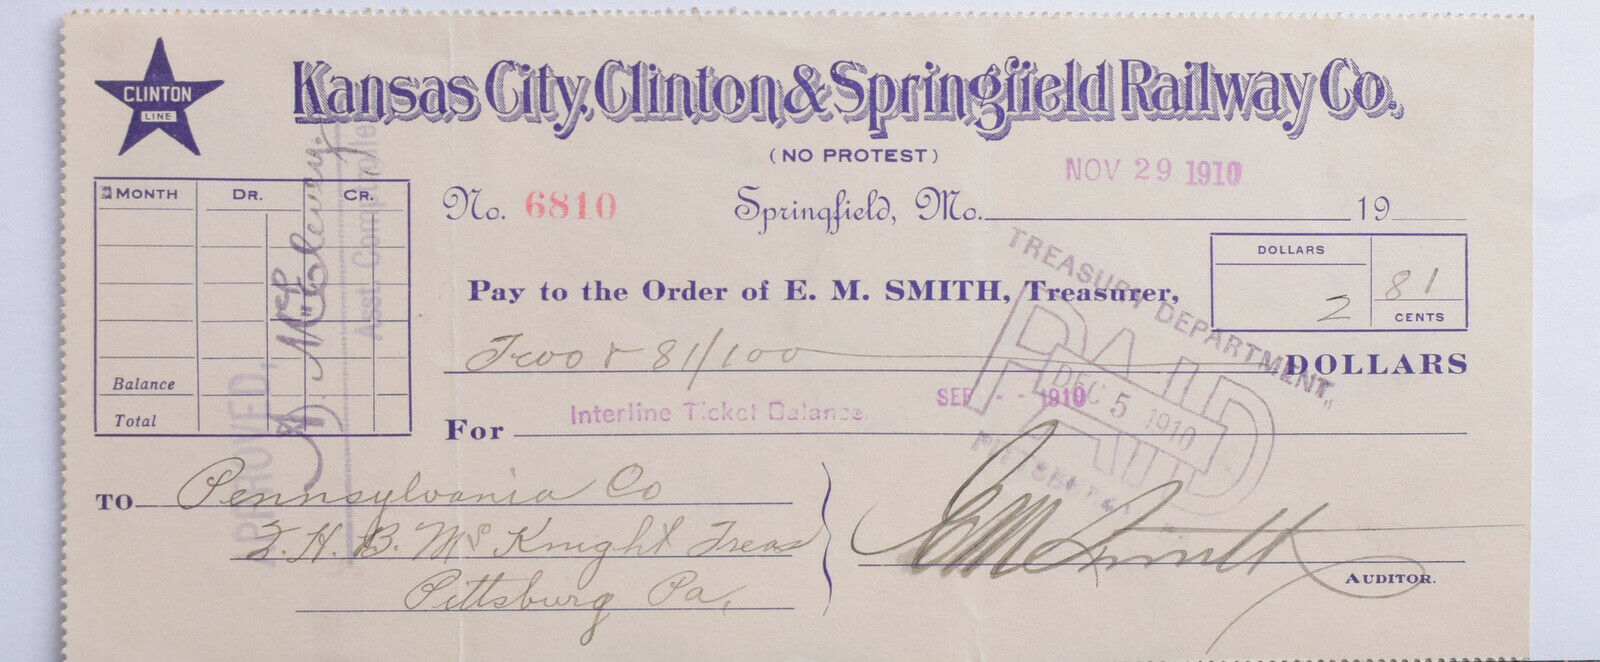 CLINTON
LINE
Kansas City, Clinton & Springfield Railway Co.
(NO PROTEST)
NOV 29 1910
No. 6810 Springfield, Mo. 19
MONTH DR. CR.
Balance
Total
APPROVED,
Asst. Comptroller
DOLLARS
2 81
CENTS
Pay to the Order of E. M. SMITH, Treasurer,
Two & 81/100 DOLLARS
For Interline Ticket Balance SEP -- 1910
TREASURY DEPARTMENT,
PAID
DEC 5 1910
TO Pennsylvania Co
T. H. B. McKnight Treas
Pittsburg Pa,
E M Smith
AUDITOR.